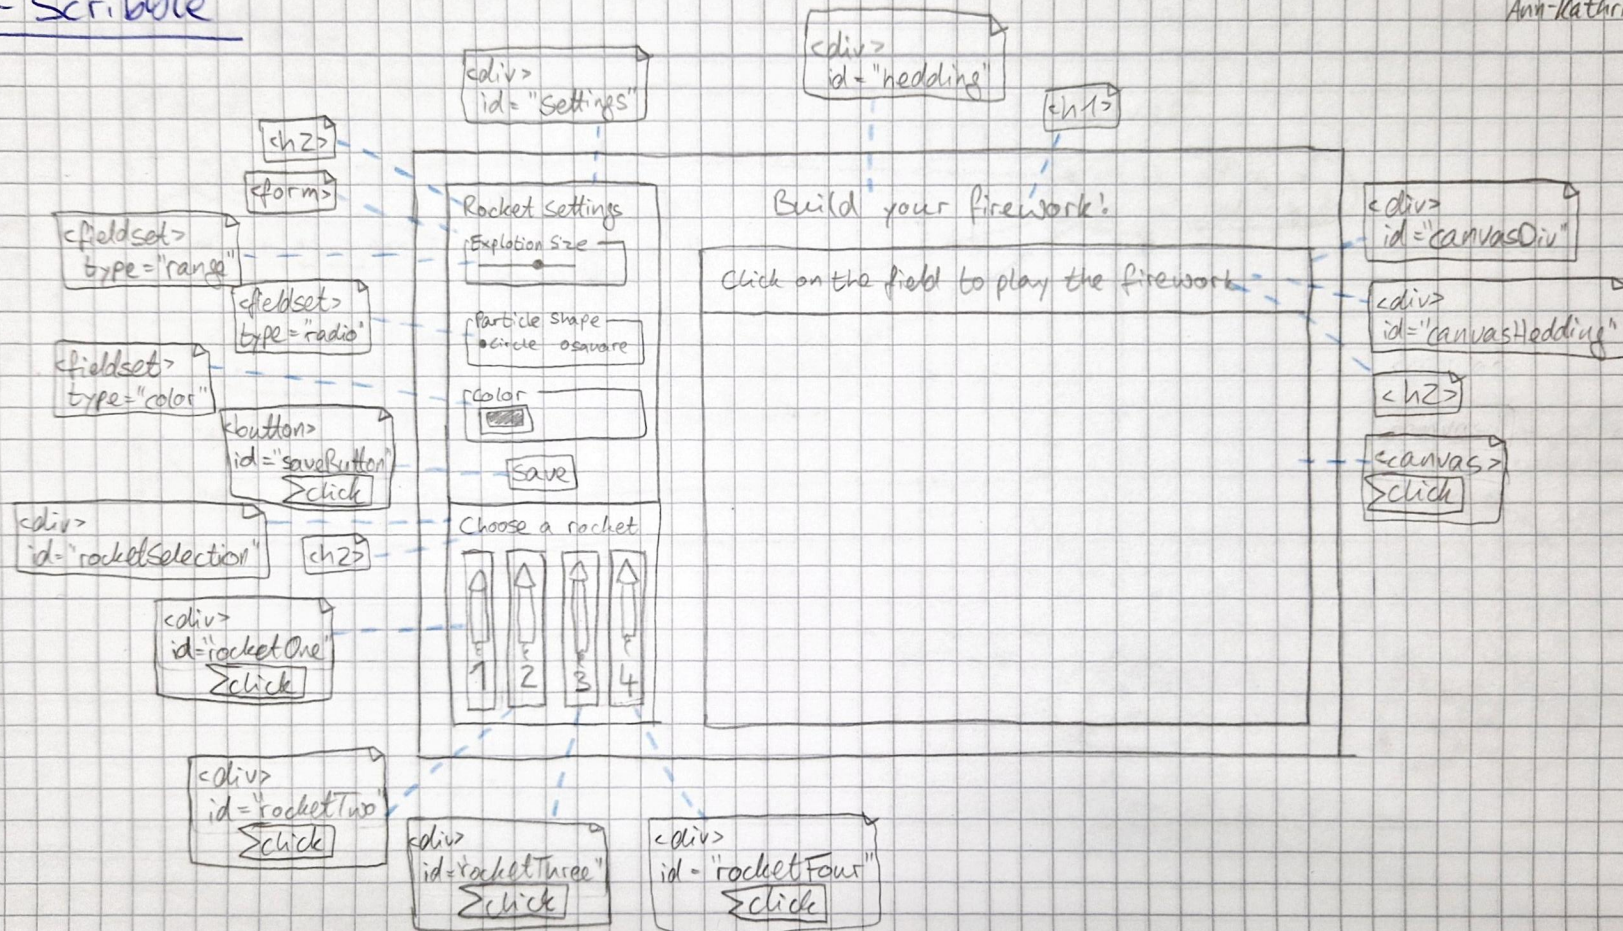 - Scribble
Ann-Kathr
<div>
id="hedding"
<div>
id="Settings"
<h1>
<h2>
<form>
<fieldset>
type="range"
<fieldset>
type="radio"
<fieldset>
type="color"
<button>
id="saveButton"
click
<div>
id="rocketSelection"
<h2>
<div>
id="rocketOne"
click
<div>
id="rocketTwo"
click
<div>
id="rocketThree"
click
<div>
id="rocketFour"
click
Rocket Settings
Explotion Size
Particle Shape
circle square
Color
save
Choose a rocket
1 2 3 4
Build your firework!
Click on the field to play the firework
<div>
id="canvasDiv"
<div>
id="canvasHedding"
<h2>
<canvas>
click